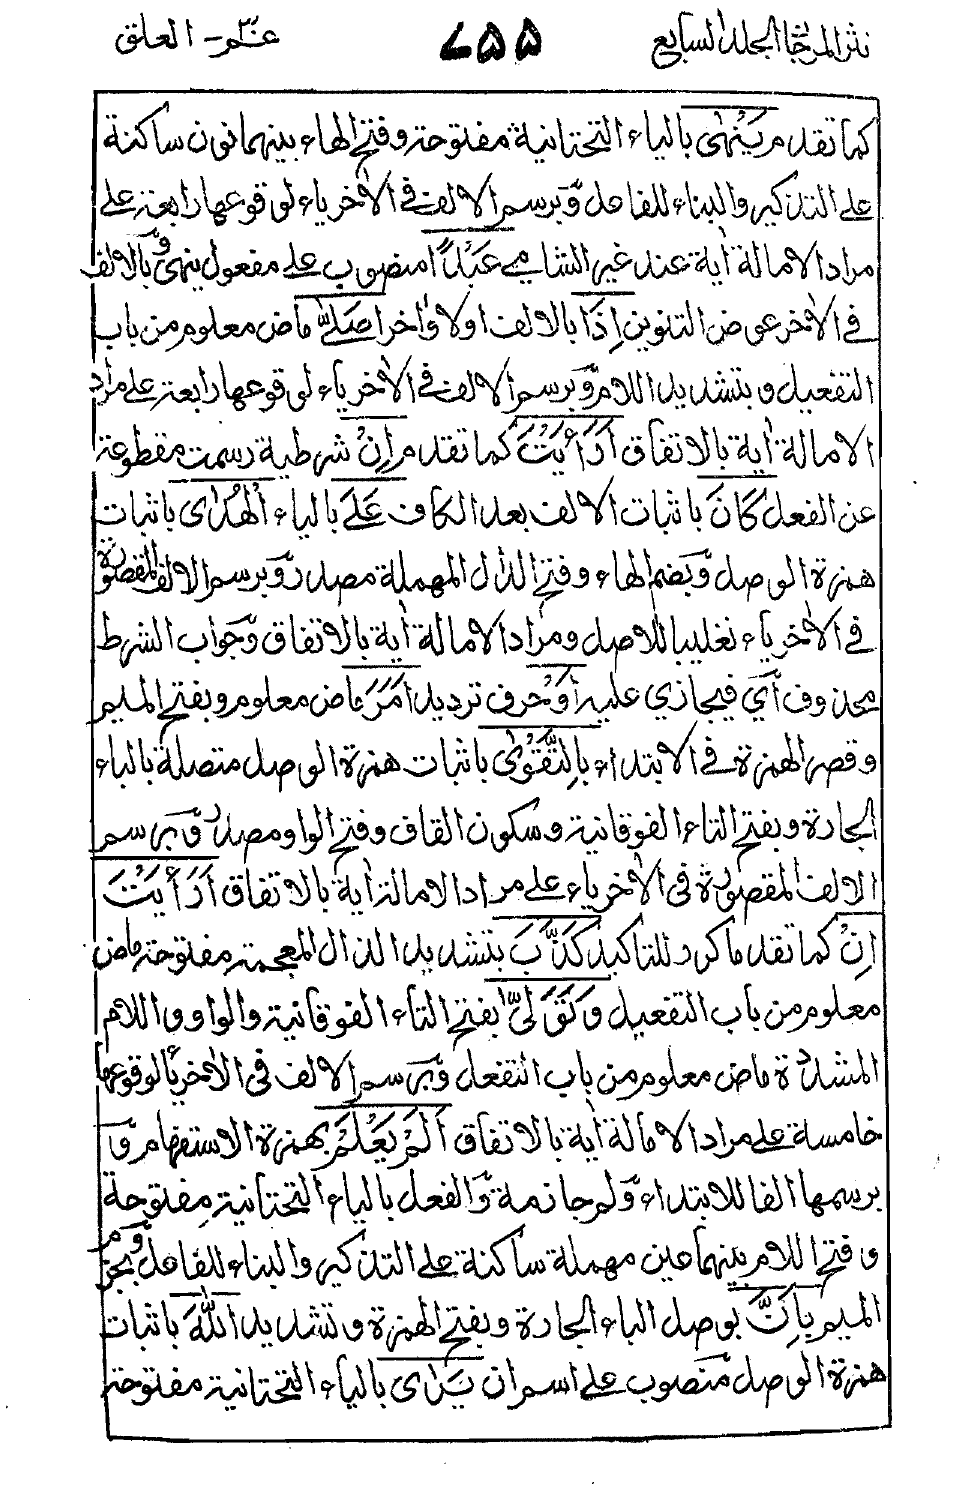 نثر المرجان الجلد السابع ٧٥٥ عمّ - العلق
كما تقدم يَنْهٰى بالياء التحتانية مفتوحة وفتح الهاء بينهما نون ساكنة
على التذكير والبناء للفاعل وبرسم الالف في الآخر ياء لوقوعها رابعة على
مراد الامالة اٰية عند غير الشامي عَبْدًا منصوب على مفعول ينهى وبالالف
في الآخر عوض التنوين اِذَا بالالف اولا واٰخرا صَلّٰى ماض معلوم من باب
التفعيل وبتشديد اللام وبرسم الالف في الآخر ياء لوقوعها رابعة على مراد
الامالة اٰية بالاتفاق اَرَاَيْتَ كما تقدم اِنْ شرطية رسمت مقطوعة
عن الفعل كَانَ باثبات الالف بعد الكاف عَلَى بالياء الْهُدٰى باثبات
همزة الوصل وبضم الهاء وفتح الدال المهملة مصدر وبرسم الالف المقصورة
في الآخر ياء تغليبا للاصل ومراد الامالة اٰية بالاتفاق وجواب الشرط
محذوف اي فيجازي عليه اَوْ حرف ترديد اَمَرَ ماض معلوم وبفتح الميم
وقصر الهمزة في الابتداء بِالتَّقْوٰى باثبات همزة الوصل متصلة بالباء
الجارة وبفتح التاء الفوقانية وسكون القاف وفتح الواو مصدر وبرسم
الالف المقصورة في الآخر ياء على مراد الامالة اٰية بالاتفاق اَرَاَيْتَ
اِنْ كما تقدما كرر للتاكيد كَذَّبَ بتشديد الذال المعجمة مفتوحة ماض
معلوم من باب التفعيل وَتَوَلّٰى بفتح التاء الفوقانية والواو واللام
المشددة ماض معلوم من باب التفعل وبرسم الالف في الآخر ياء لوقوعها
خامسة على مراد الامالة اٰية بالاتفاق اَلَمْ يَعْلَمْ بهمزة الاستفهام و
برسمها الفا للابتداء ولم جازمة والفعل بالياء التحتانية مفتوحة
وفتح اللام بينهما عين مهملة ساكنة على التذكير والبناء للفاعل وبجزم
الميم بِاَنَّ بوصل الباء الجارة وبفتح الهمزة وتشديد اللّٰهَ باثبات
همزة الوصل منصوب على اسم ان يَرٰى بالياء التحتانية مفتوحة